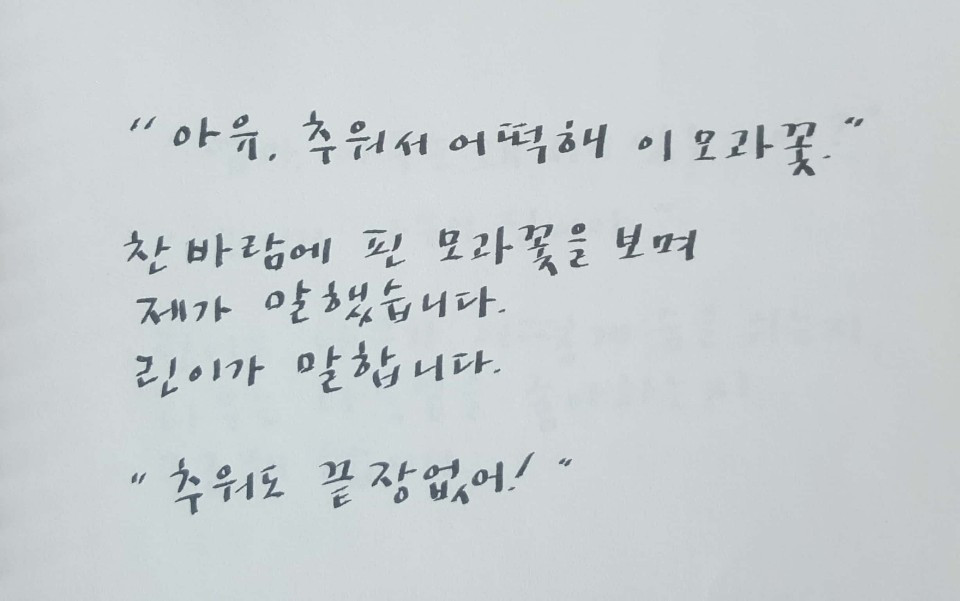 “아유, 추워서 어떡해 이 모과꽃.”
찬바람에 핀 모과꽃을 보며
제가 말했습니다.
린이가 말합니다.
“추워도 끝장없어!”